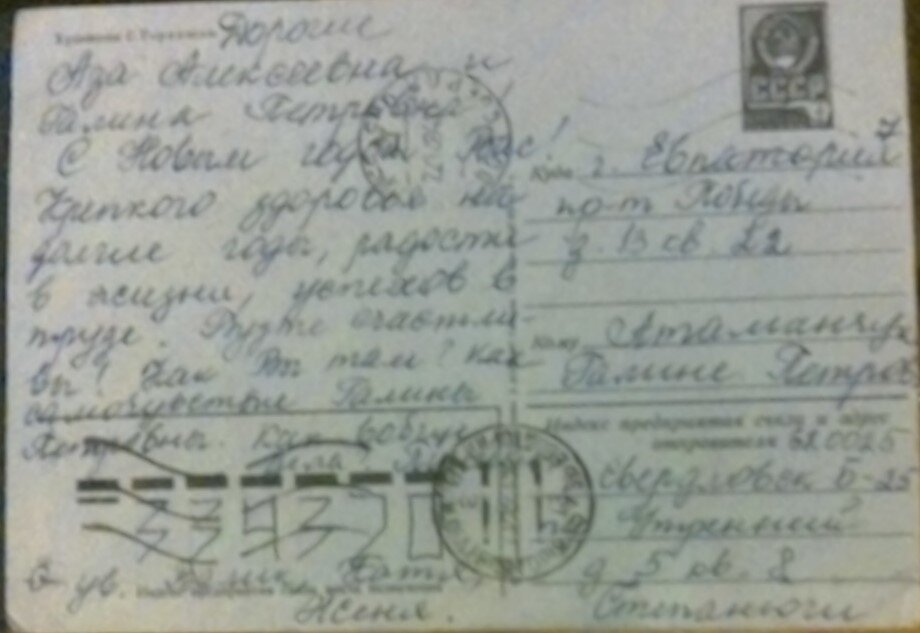 Дорогие
Аза Алексеевна и
Галина Петровна!
С Новым годом Вас!
Крепкого здоровья на
долгие годы, радости
в жизни, успехов в
труде. Будьте счастли-
вы! Как Вы там? Как
самочувствие Галины
Петровны. Как вообще
С ув.
Женя.
СССР
Куда г. Евпатория 7
пр-т Победы
д. 13 кв. 22
Кому Атаманчук
Галине Петров
Индекс предприятия связи и адрес
отправителя 620025
Свердловск Б-25
Утренний
д. 5 кв. 8
Степанюги